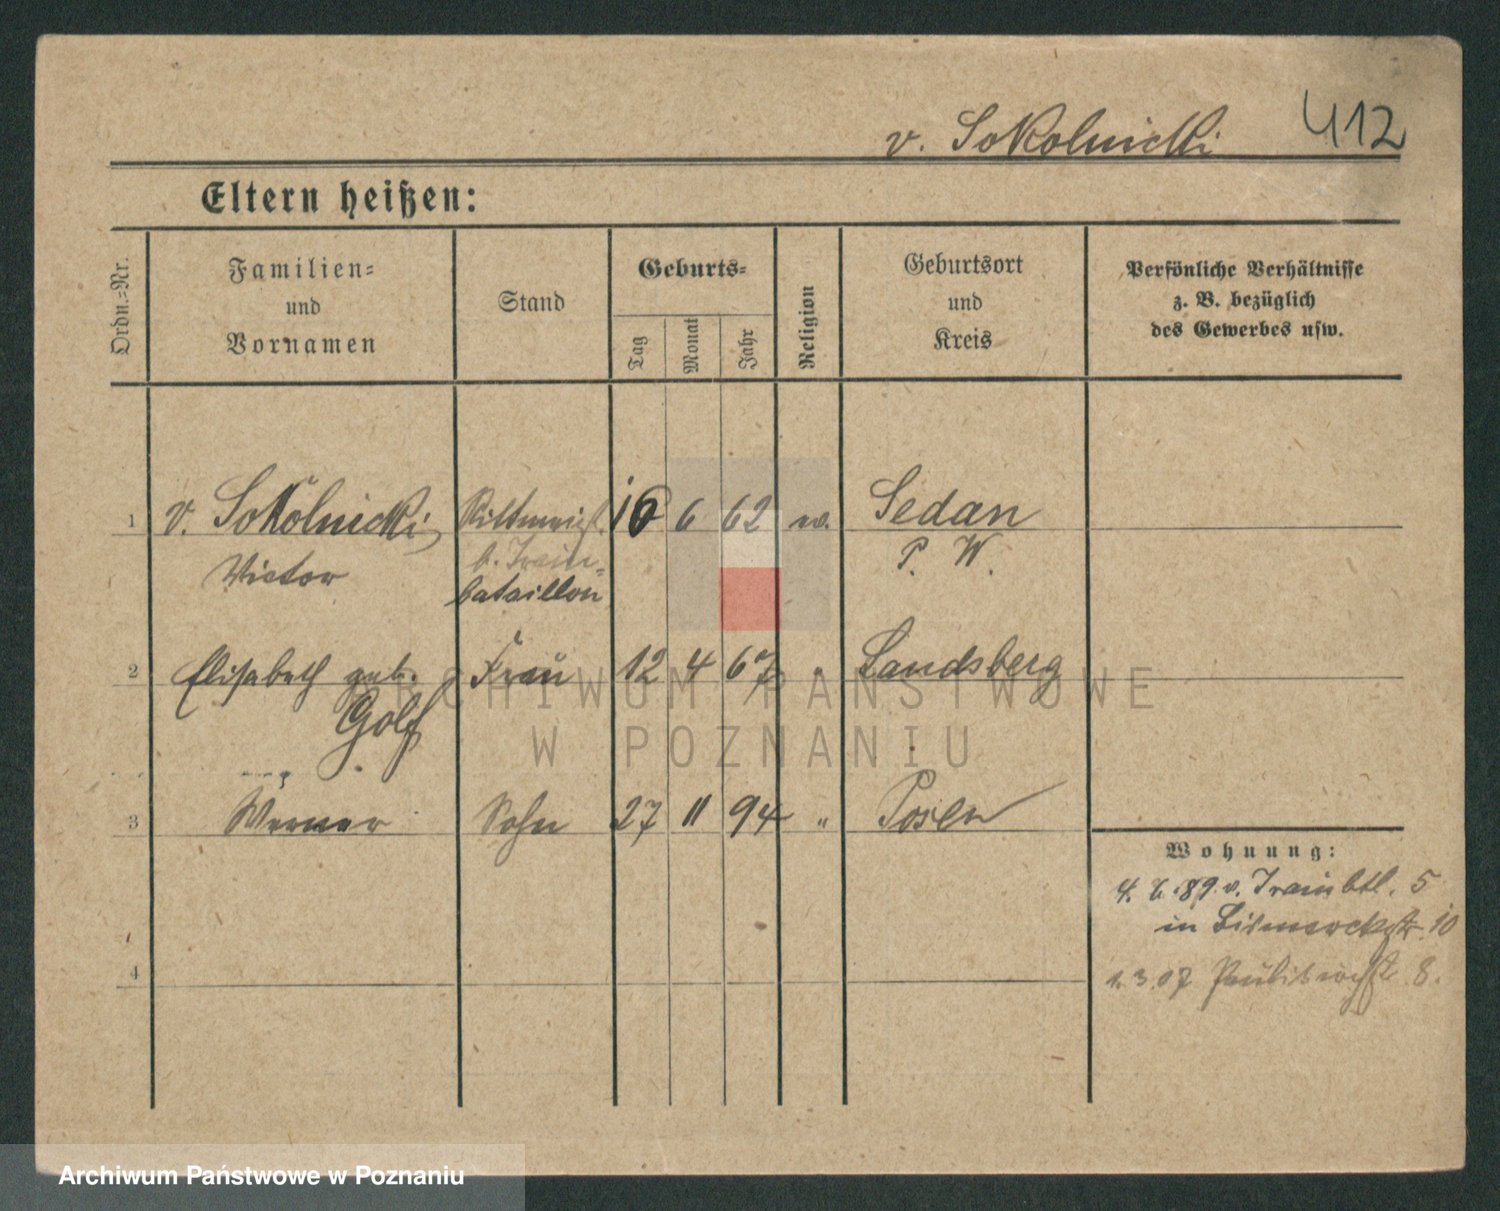 v. Sokolnicki 412
Eltern heißen:
Ordn.-Nr.
Familien-
und
Vornamen
Stand
Geburts-
Tag
Monat
Jahr
Religion
Geburtsort
und
Kreis
Persönliche Verhältnisse
z. B. bezüglich
des Gewerbes usw.
1 v. Sokolnicki, Rittmeist. 16 6 62 Sedan
Victor b. Train- P. W.
bataillon
2 Elisabeth geb. Frau 12 4 67 Landsberg
Golf
3 Werner Sohn 27 11 94 " Posen
Wohnung:
4. 89. v. Trainbtl. 5
in Bismarckstr. 10
4
1. 3. 07 8.
ARCHIWUM PAŃSTWOWE
W POZNANIU
Archiwum Państwowe w Poznaniu